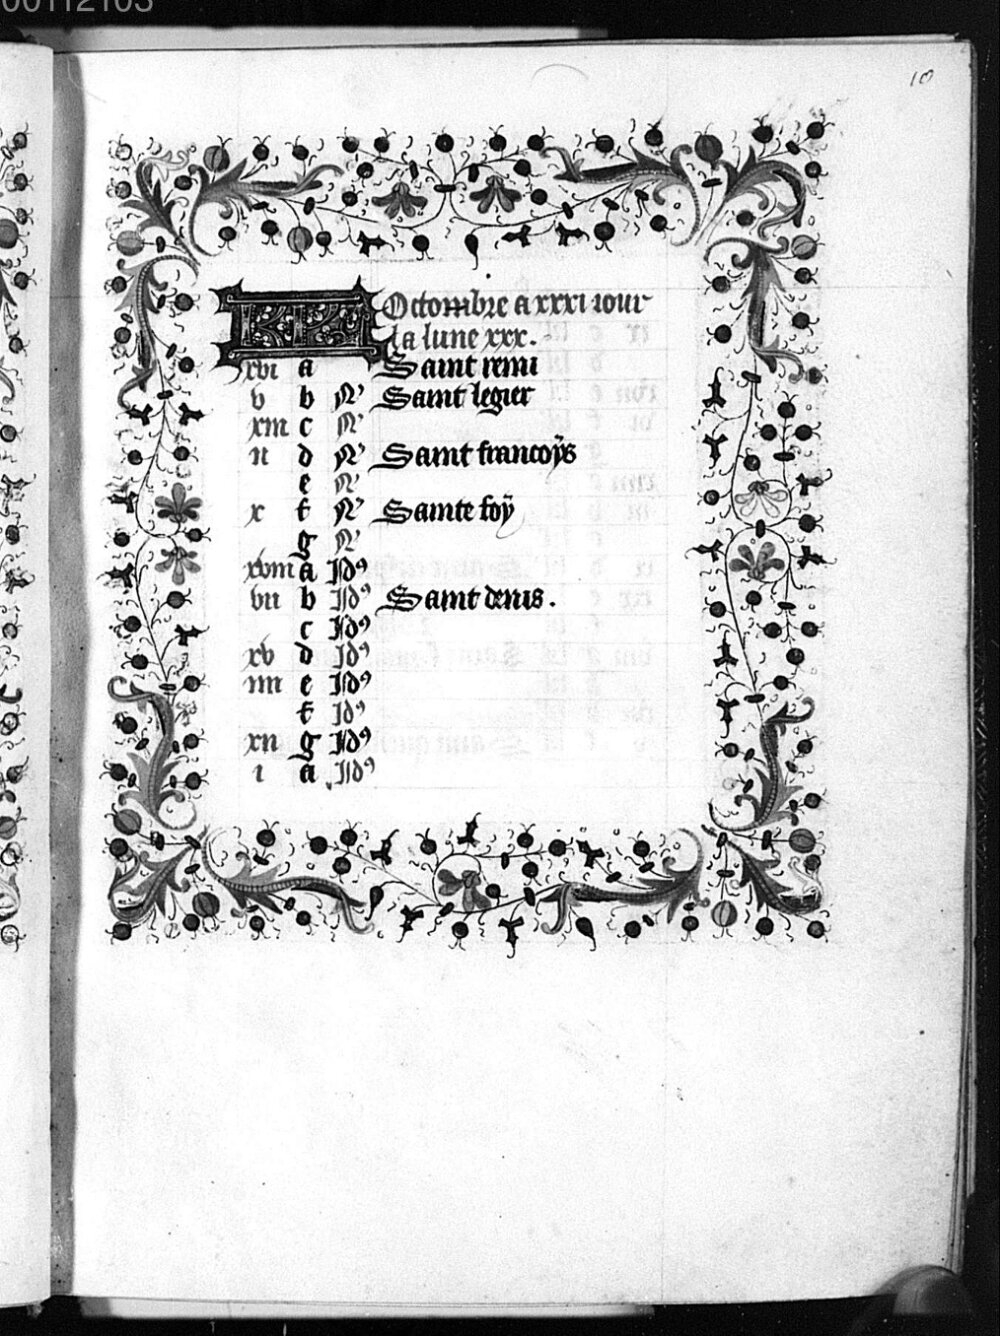 00112103
10
KL Octombre a xxxi iour
la lune xxx.
xvi a Saint remi
v b N' Saint legier
xiii c N'
ii d N' Saint francoÿs
e N'
x f N' Sainte foÿ
g N'
xviii a Id9
vii b Id9 Saint denis.
c Id9
xv d Id9
iiii e Id9
f Id9
xii g Id9
i a Id9